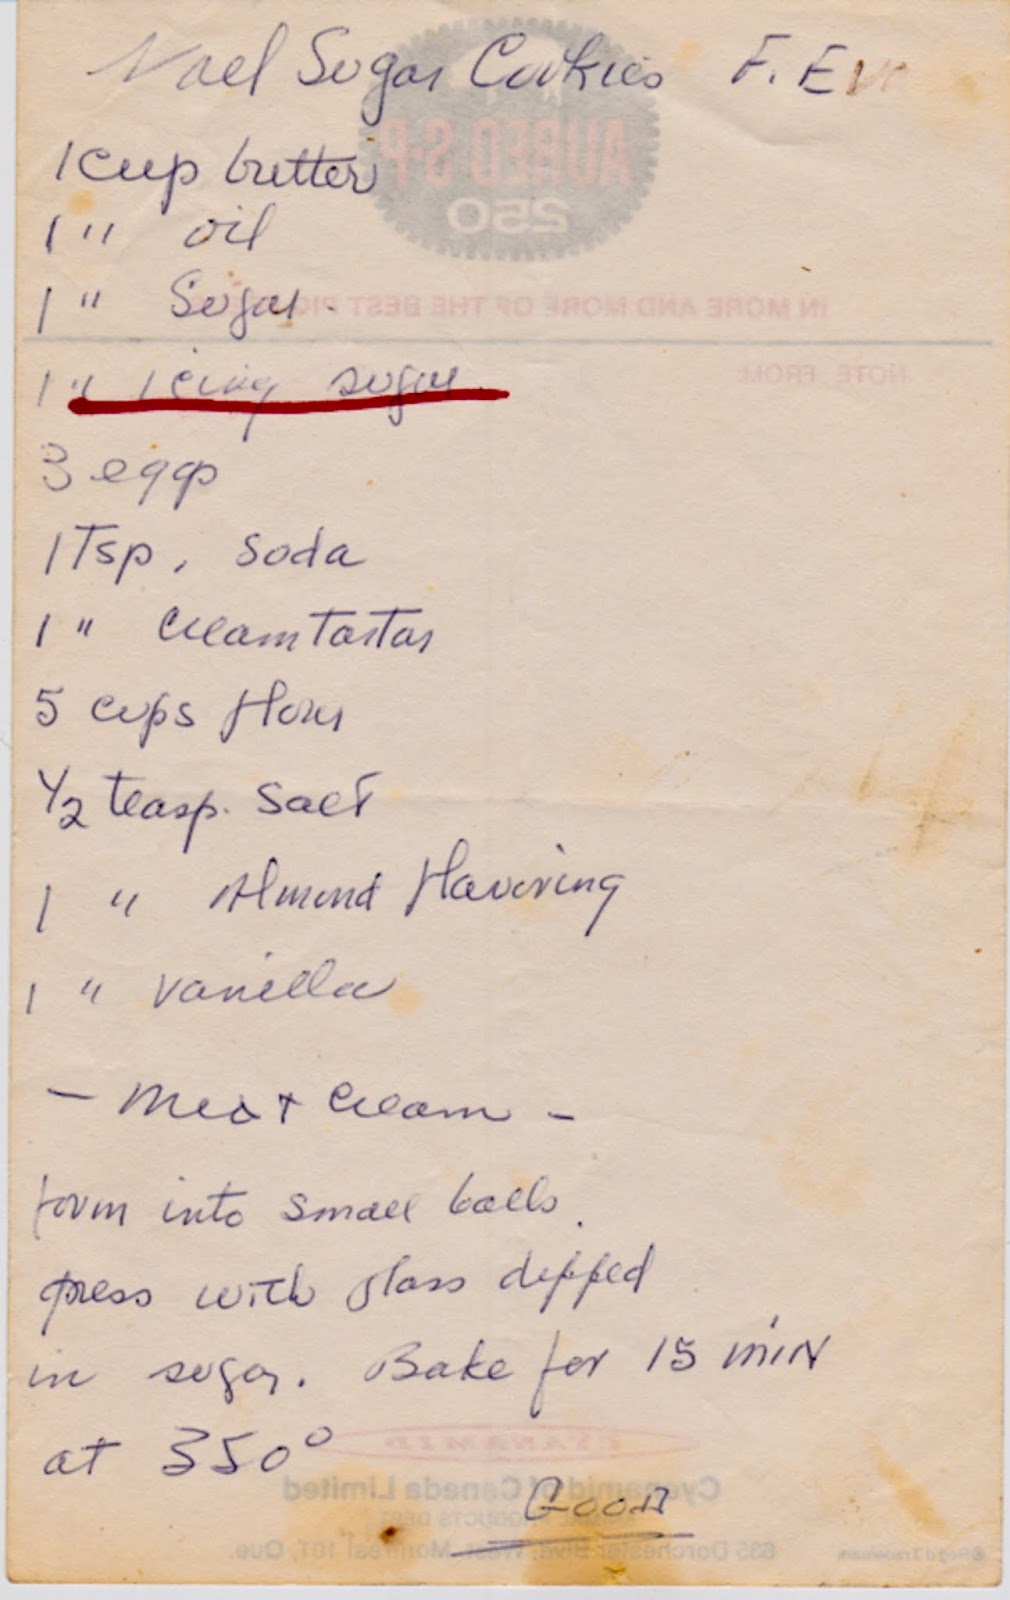 Noel Sugar Cookies F. Ev
1 cup butter
1 " oil
1 " Sugar.
1 " Icing sugar
3 eggs
1 Tsp. Soda
1 " Cream Tartar
5 cups flour
1/2 teasp. Salt
1 " Almond Flavoring
1 " vanilla
- Mix + Cream -
form into small balls.
press with glass dipped
in sugar. Bake for 15 min
at 350°
Good
AUREO S·P
250
IN MORE AND MORE OF THE BEST PIG
NOTE FROM:
CYANAMID
Cyanamid of Canada Limited
PRODUCTS DEPT.
635 Dorchester Blvd. West, Montreal 101, Que.